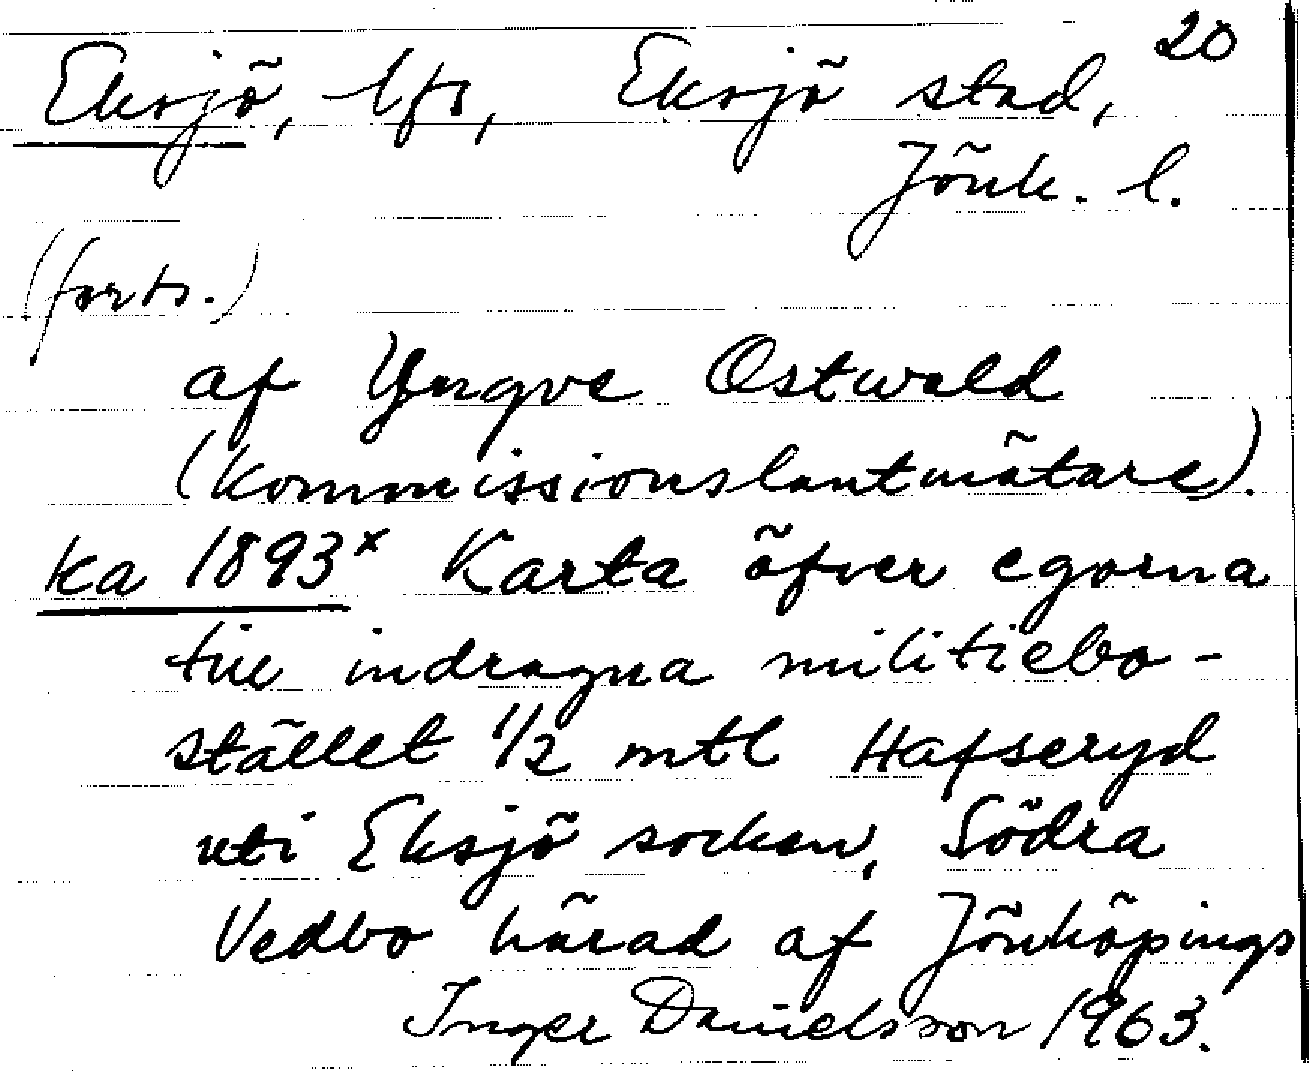 20
Eksjö, lfs, Eksjö stad,
Jönk. l.
(forts.)
af Yngve Ostwald
(kommissionslantmätare).
ka 1893x Karta öfver egorna
till indragna militiebo-
stället 1/2 mtl Hafseryd
uti Eksjö socken, Södra
Vedbo härad af Jönköpings
Inger Danielsson 1963.